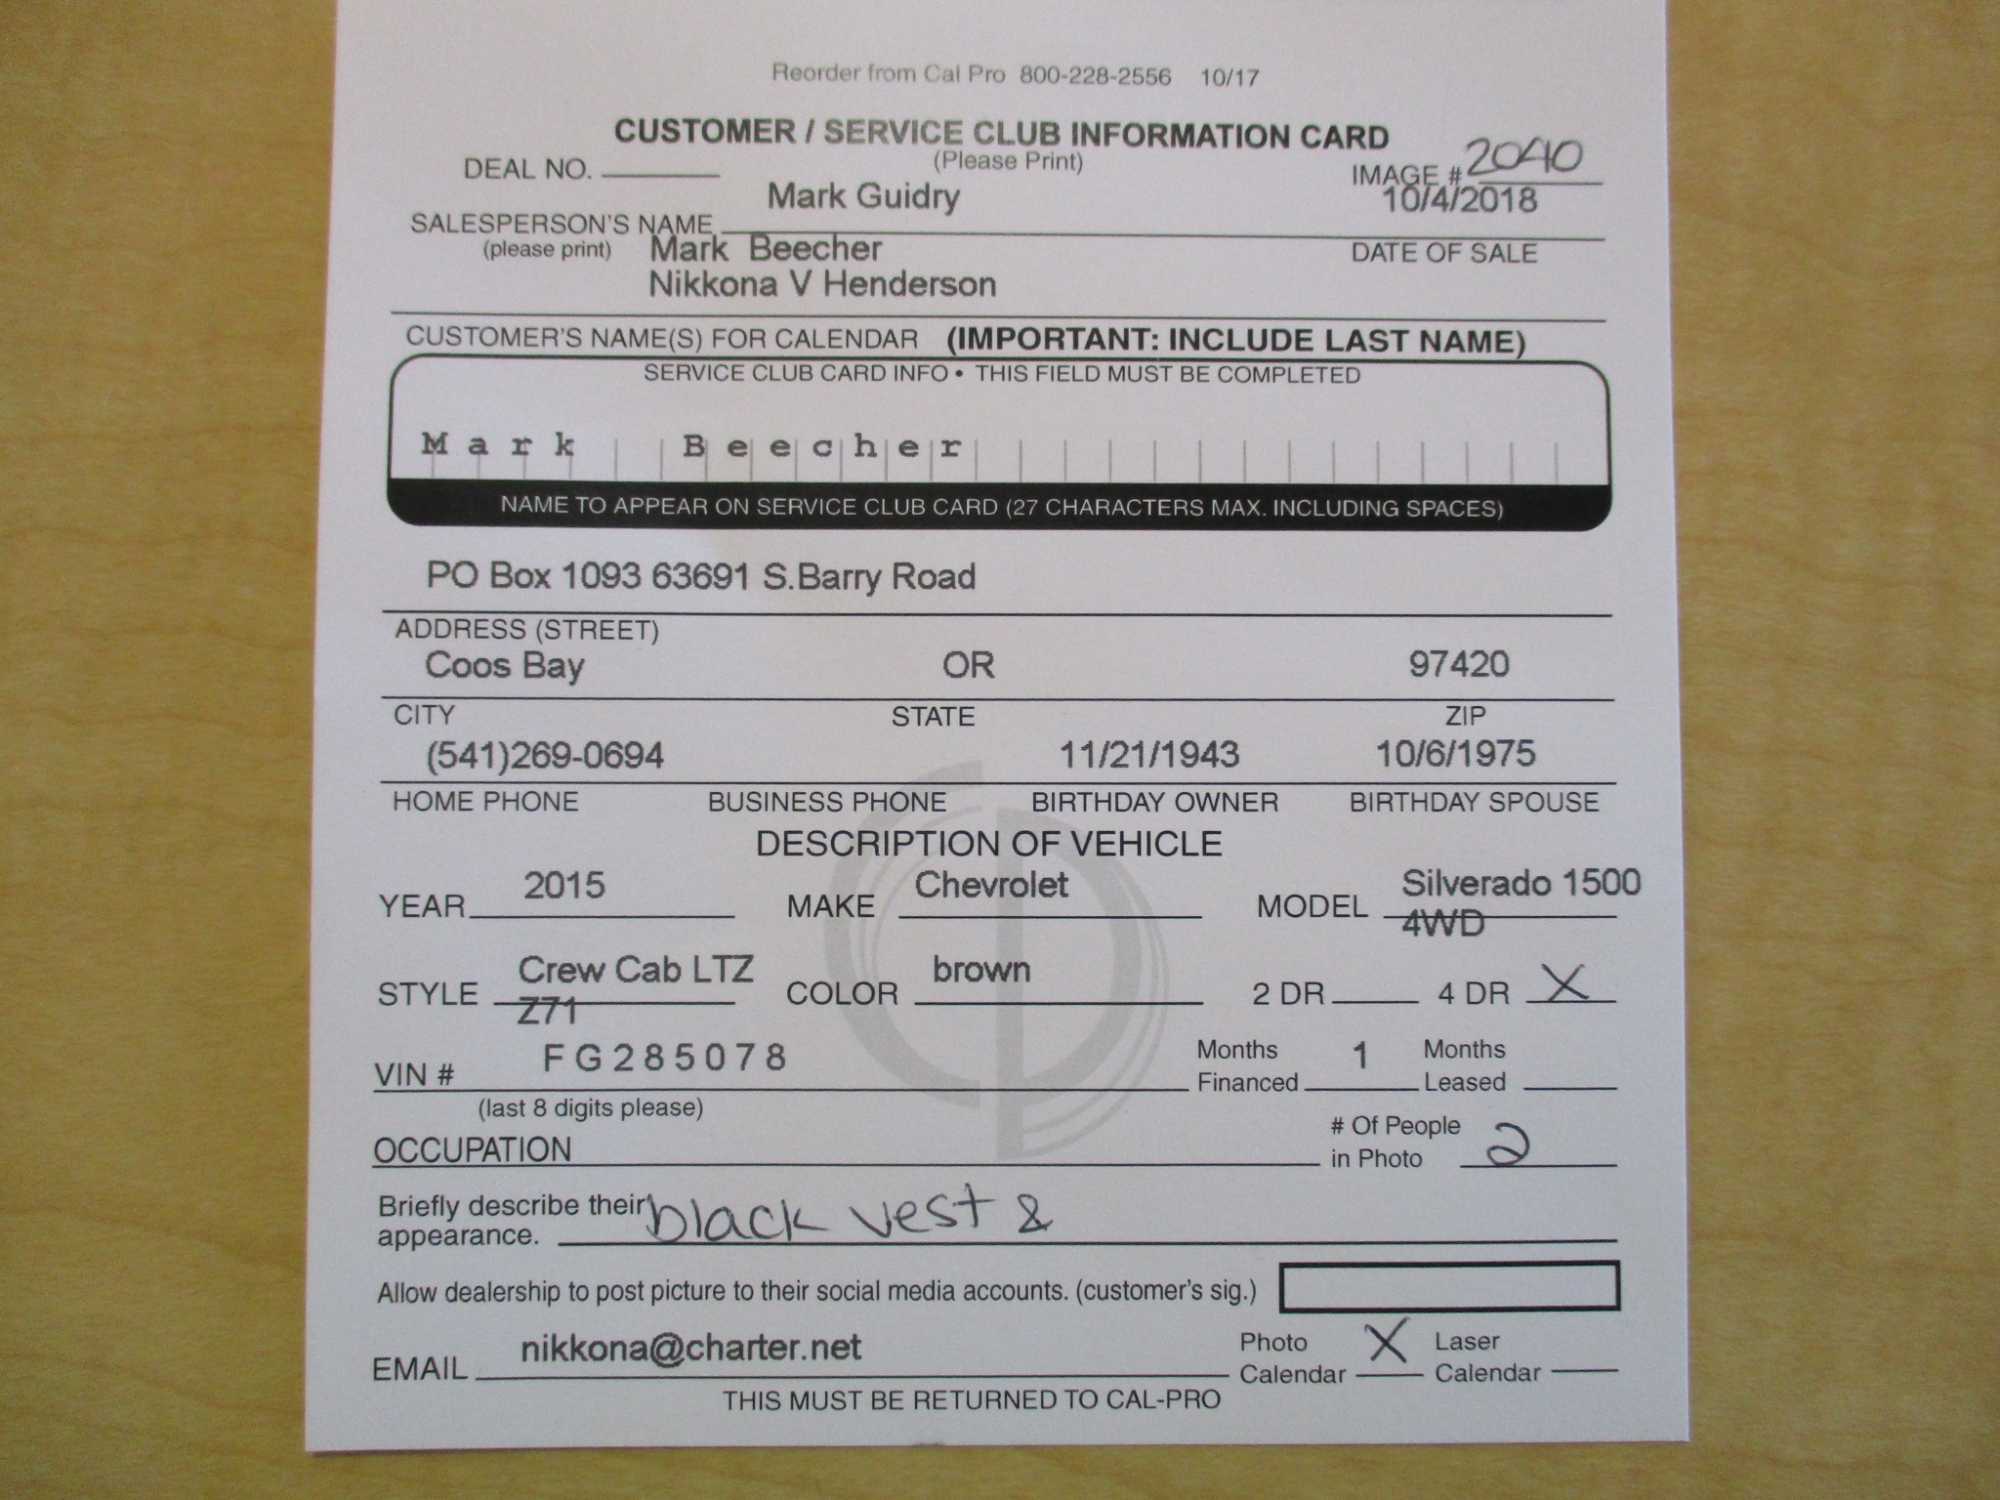 Reorder from Cal Pro 800-228-2556 10/17
CUSTOMER / SERVICE CLUB INFORMATION CARD
(Please Print)
DEAL NO. IMAGE # 2040
Mark Guidry 10/4/2018
SALESPERSON'S NAME
(please print) Mark Beecher DATE OF SALE
Nikkona V Henderson
CUSTOMER'S NAME(S) FOR CALENDAR (IMPORTANT: INCLUDE LAST NAME)
SERVICE CLUB CARD INFO • THIS FIELD MUST BE COMPLETED
Mark Beecher
NAME TO APPEAR ON SERVICE CLUB CARD (27 CHARACTERS MAX. INCLUDING SPACES)
PO Box 1093 63691 S.Barry Road
ADDRESS (STREET)
Coos Bay OR 97420
CITY STATE ZIP
(541)269-0694 11/21/1943 10/6/1975
HOME PHONE BUSINESS PHONE BIRTHDAY OWNER BIRTHDAY SPOUSE
DESCRIPTION OF VEHICLE
YEAR 2015 MAKE Chevrolet MODEL Silverado 1500
4WD
STYLE Crew Cab LTZ COLOR brown 2 DR 4 DR X
Z71
VIN # FG285078 Months Financed 1 Months Leased
(last 8 digits please)
OCCUPATION # Of People in Photo 2
Briefly describe their appearance. black vest &
Allow dealership to post picture to their social media accounts. (customer's sig.)
EMAIL nikkona@charter.net Photo Calendar X Laser Calendar
THIS MUST BE RETURNED TO CAL-PRO